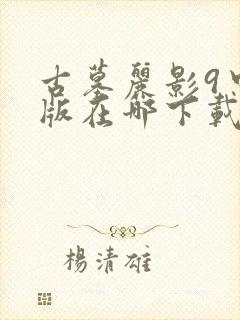 古墓麗影9中
版在哪下載
楊清雄